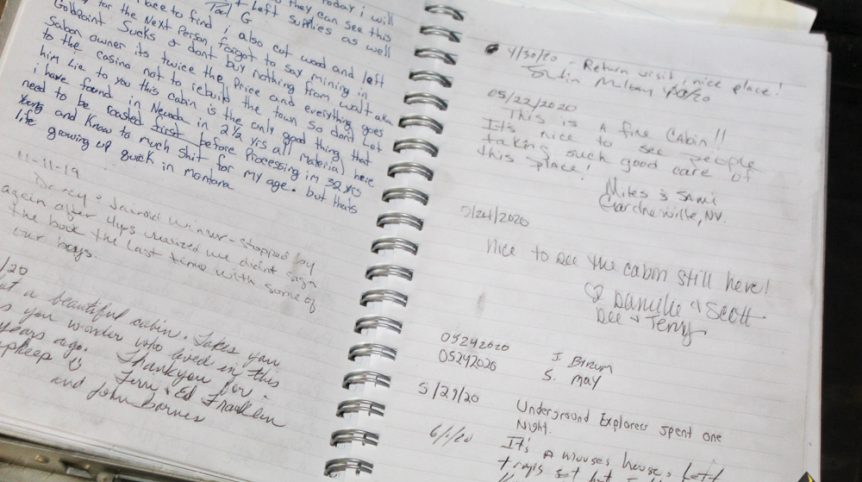 today i will
they can see this
left supplies as well
place to find i also cut wood and left
for the Next Person, forgot to say mining in
Goldpoint Sucks & dont buy nothing from
Saloon owner its twice the price and everything goes
to the casino not to rebuild the town so dont Let
him Lie to you this cabin is the only good thing that
i have found in Nevada in 2½ yrs all material here
need to be roasted first before Processing im 32 yrs
young and Know to much shit for my age. but thats
life growing up quick in montana
11-11-19
stopped by
again after 4 yrs didnt sign
the book the last time with some of
our boys.
/20
at a beautiful cabin. Takes you
you wonder who lived in this
years ago. Thankyou for
upkeep
Ed Franklin
and John Barnes
4/30/20 - Return visit, nice place!
05/22/2020
This is a fine cabin!!
It's nice to see people
taking such good care of
this place!
Miles & Sami
Gardnerville, NV.
5/24/2020
Nice to see the cabin still here!
Danielle & Scott
Dee & Terry
05242020 J. Birum
05242020 S. May
5/29/20 Underground Explorers spent one
Night.
6/1/20 It's a mouses house, Left
traps set but